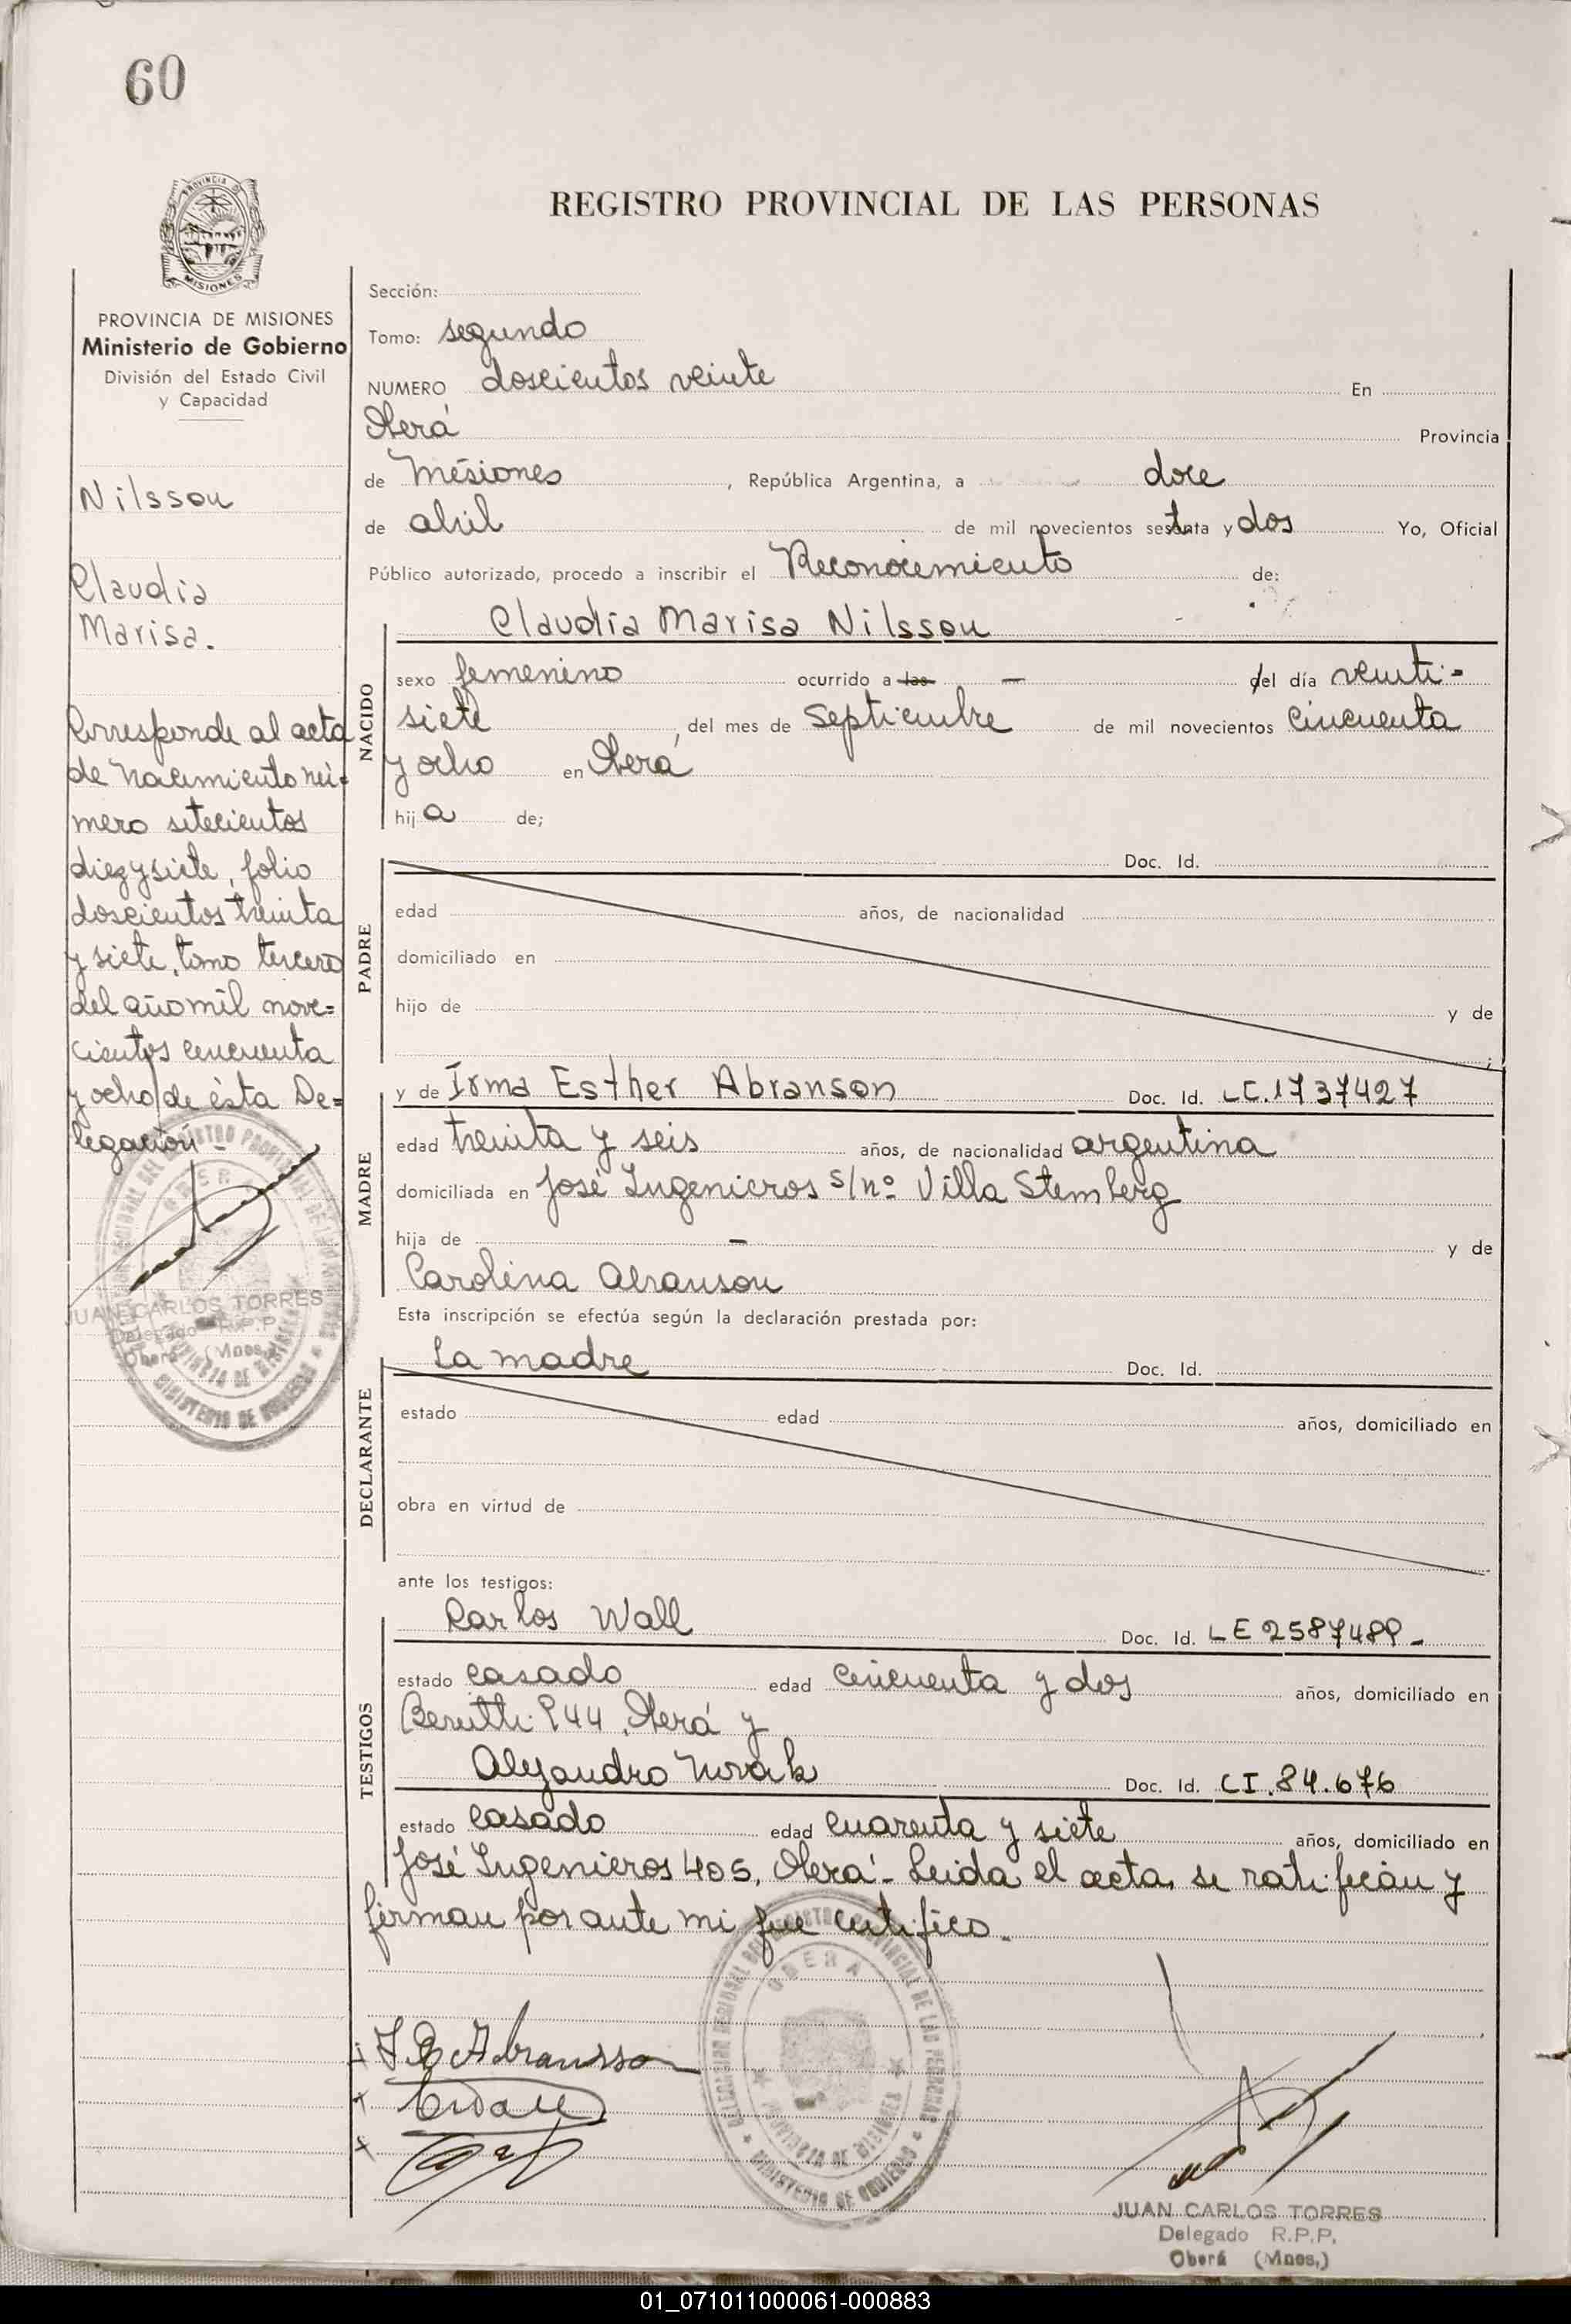 60
REGISTRO PROVINCIAL DE LAS PERSONAS
MISIONES
PROVINCIA DE MISIONES
Ministerio de Gobierno
División del Estado Civil
y Capacidad
Nilsson
Claudia
Marisa.
Corresponde al acta
de Nacimiento nú-
mero setecientos
diez y siete, folio
doscientos treinta
y siete, tomo tercero
del año mil nove=
cientos cincuenta
y ocho de ésta De=
legación -
JUAN CARLOS TORRES
Delegado R.P.P.
Oberá (Mnes.)
Sección:
Tomo: segundo
NUMERO doscientos veinte En
Oberá Provincia
de Misiones, República Argentina, a doce
de abril de mil novecientos setenta y dos Yo, Oficial
Público autorizado, procedo a inscribir el Reconocimiento de:
NACIDO
Claudia Marisa Nilsson
sexo femenino ocurrido a las — del día veinti-
siete, del mes de Septiembre de mil novecientos cincuenta
y ocho en Oberá
hija de;
PADRE
Doc. Id.
edad años, de nacionalidad
domiciliado en
hijo de y de
;
MADRE
y de Irma Esther Abranson Doc. Id. LC. 1737427
edad treinta y seis años, de nacionalidad argentina
domiciliada en José Ingenieros s/nº Villa Stemberg
hija de — y de
Carolina Abranson
Esta inscripción se efectúa según la declaración prestada por:
DECLARANTE
La madre Doc. Id.
estado edad años, domiciliado en
obra en virtud de
ante los testigos:
TESTIGOS
Carlos Wall Doc. Id. LE
estado casado edad cincuenta y dos años, domiciliado en
Oberá y
Alejandro Novak Doc. Id. CI. 84.676
estado casado edad cuarenta y siete años, domiciliado en
José Ingenieros 405, Oberá - Leida el acta, se ratifican y
firman por ante mi que certifico.
OBERA
J E Abransson
JUAN CARLOS TORRES
Delegado R.P.P.
Oberá (Mnes.)
01_071011000061-000883